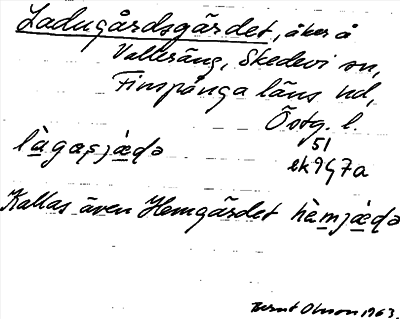 Ladugårdsgärdet, åker å
Valteräng, Skedevi sn,
Finspånga läns hd,
Östg. l.
51
ek 9G7a
làgaṣjæ̀ḍə
Kallas även Hemgärdet hæ̀mjæ̀ḍə
Bernt Olsson 1963.